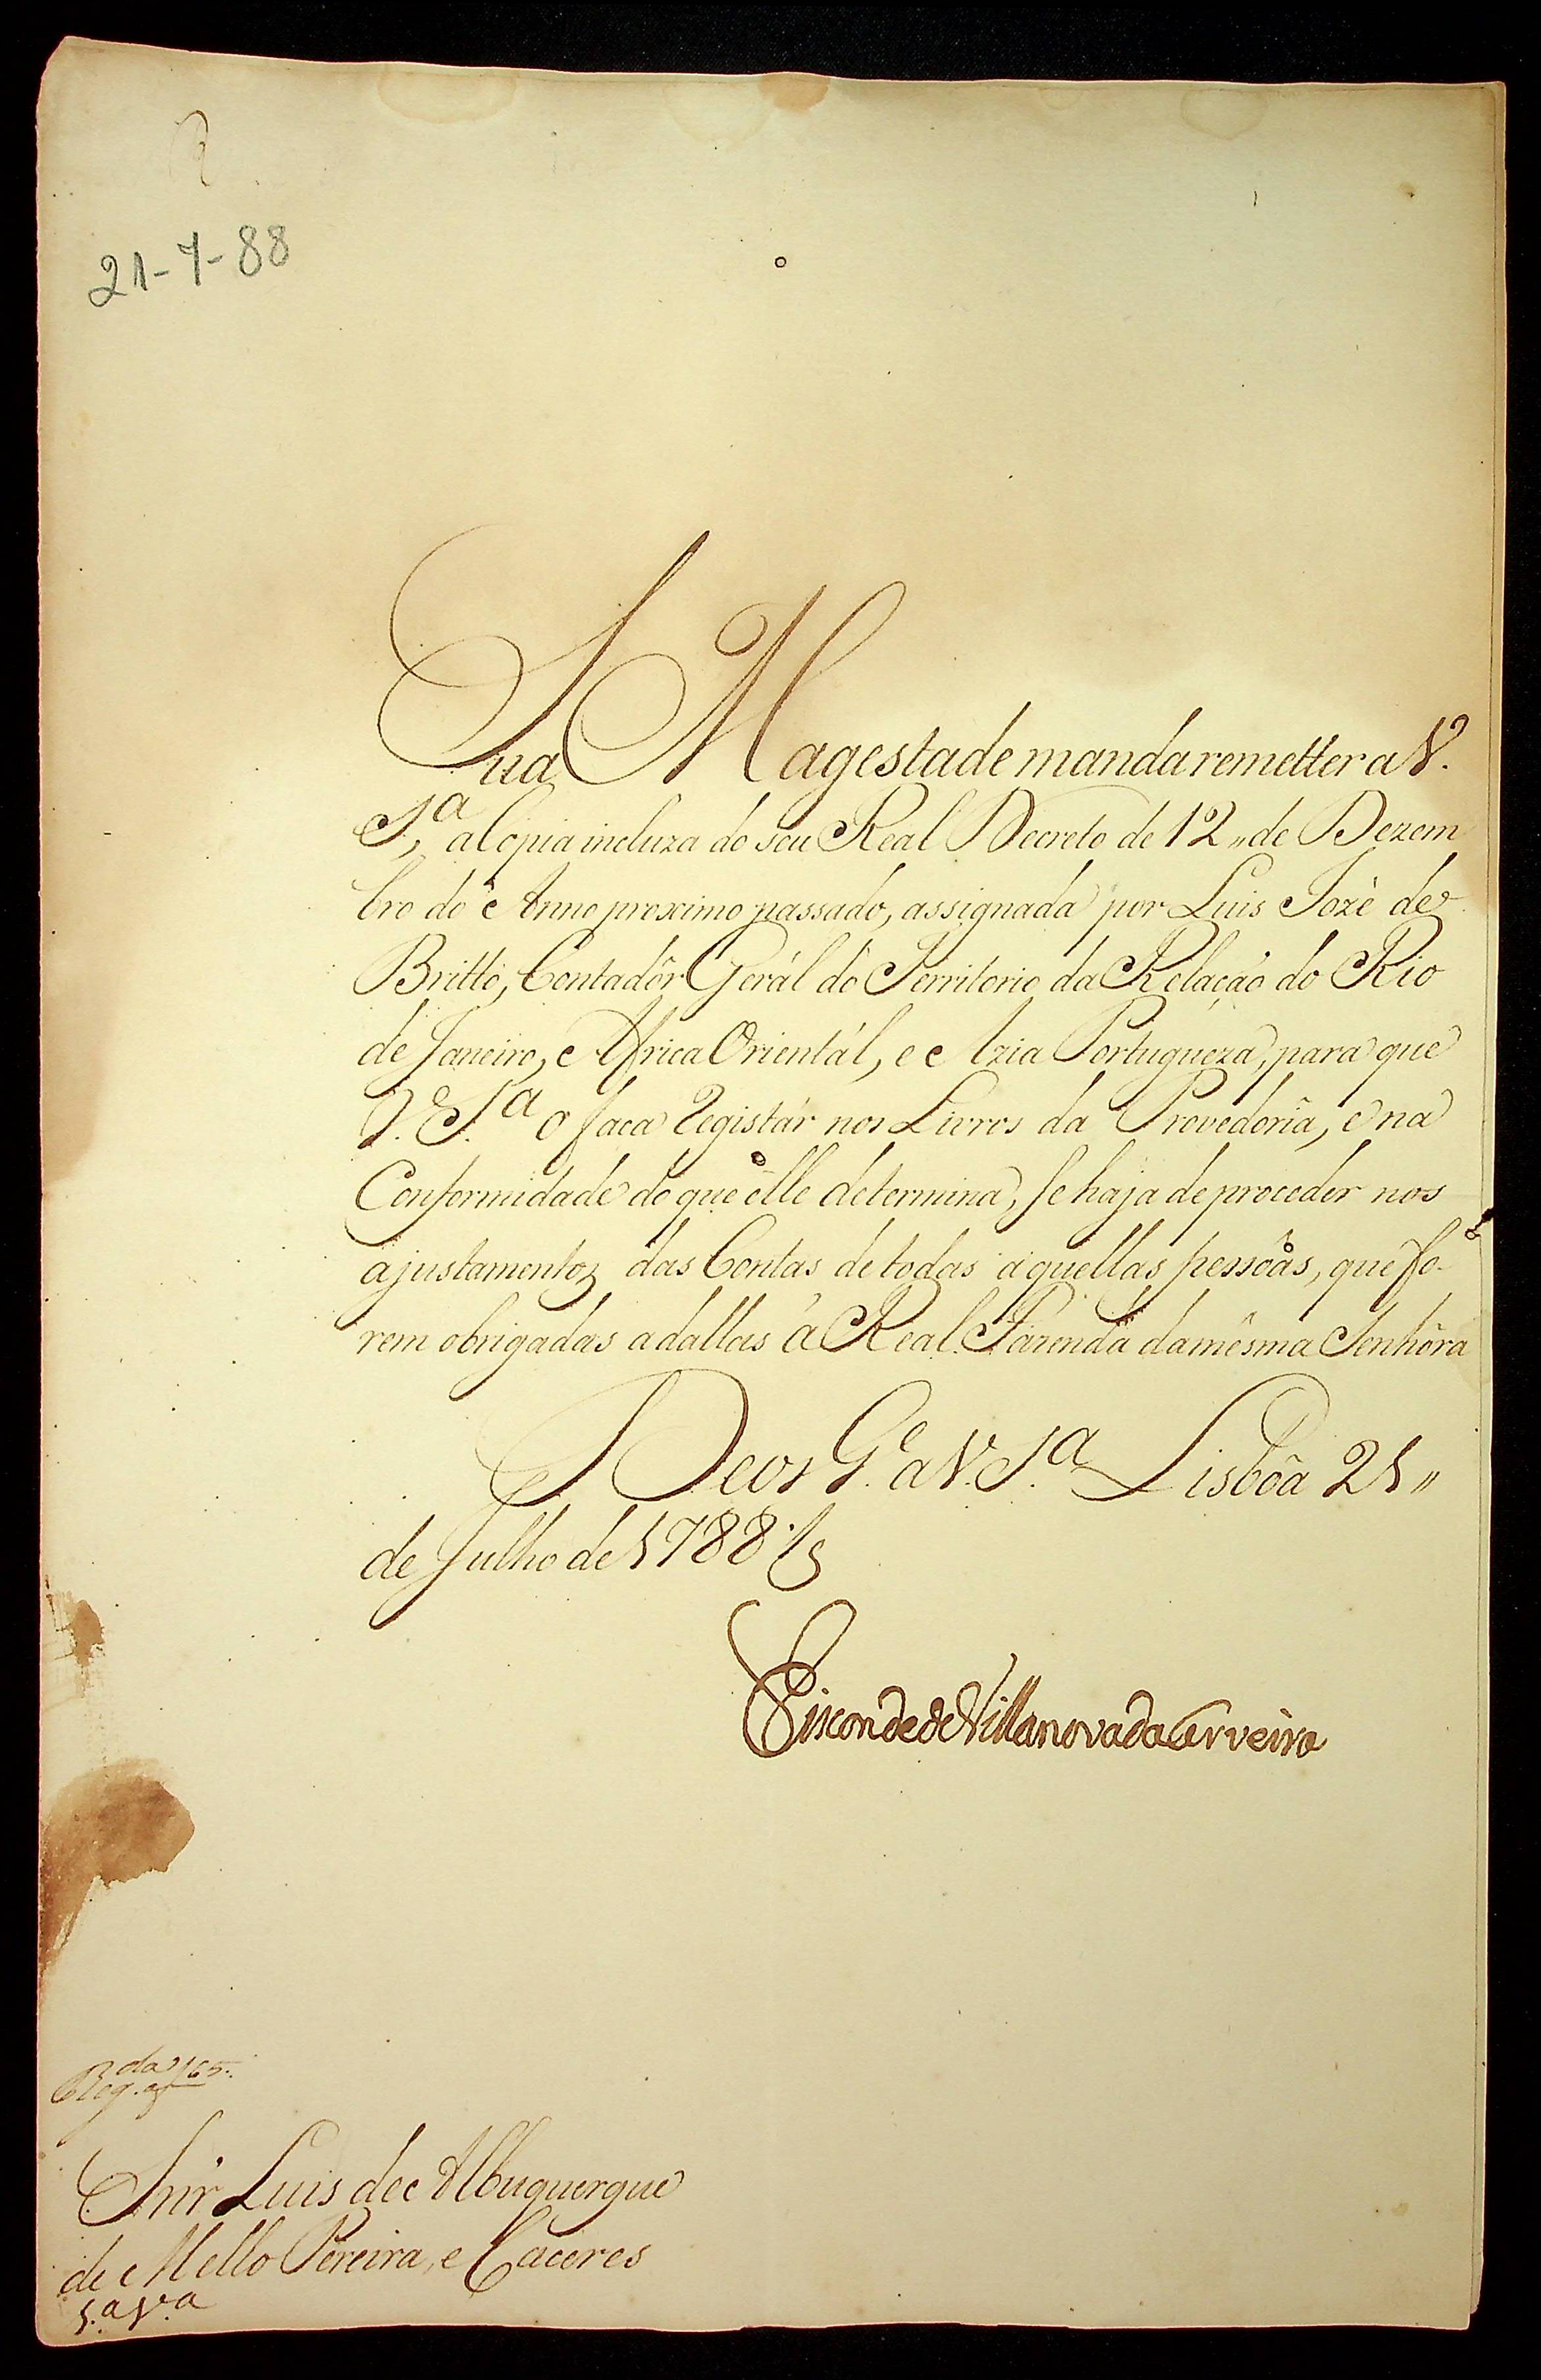 21-7-88
Sua Magestade manda remetter a V.
S.ª, a Cópia incluza do seu Real Decreto de 12,, de Dezem
bro do Anno proximo passado, assignada por Luis Jozè de
Britto, Contadôr Gerál do Territorio da Relação do Rio
de Janeiro, Africa Orientál, e Azia Portugueza, para que
V. S.ª o faça Registár nos Livros da Provedoria, e na
Conformidade do que elle determina, se haja de proceder nos
ajustamentos das Contas de todas aquellas pessôas, que fo-
rem obrigadas a dallas á Real Fazenda da mêsma Senhôra
Deos G.e a V. S.ª Lisbôa 21,,
de Julho de 1788
Visconde de Villa nova da Cerveira
Reg.da a f 65.
Snr. Luis de Albuquerque
de Mello Pereira, e Caceres
1.ª V.ª